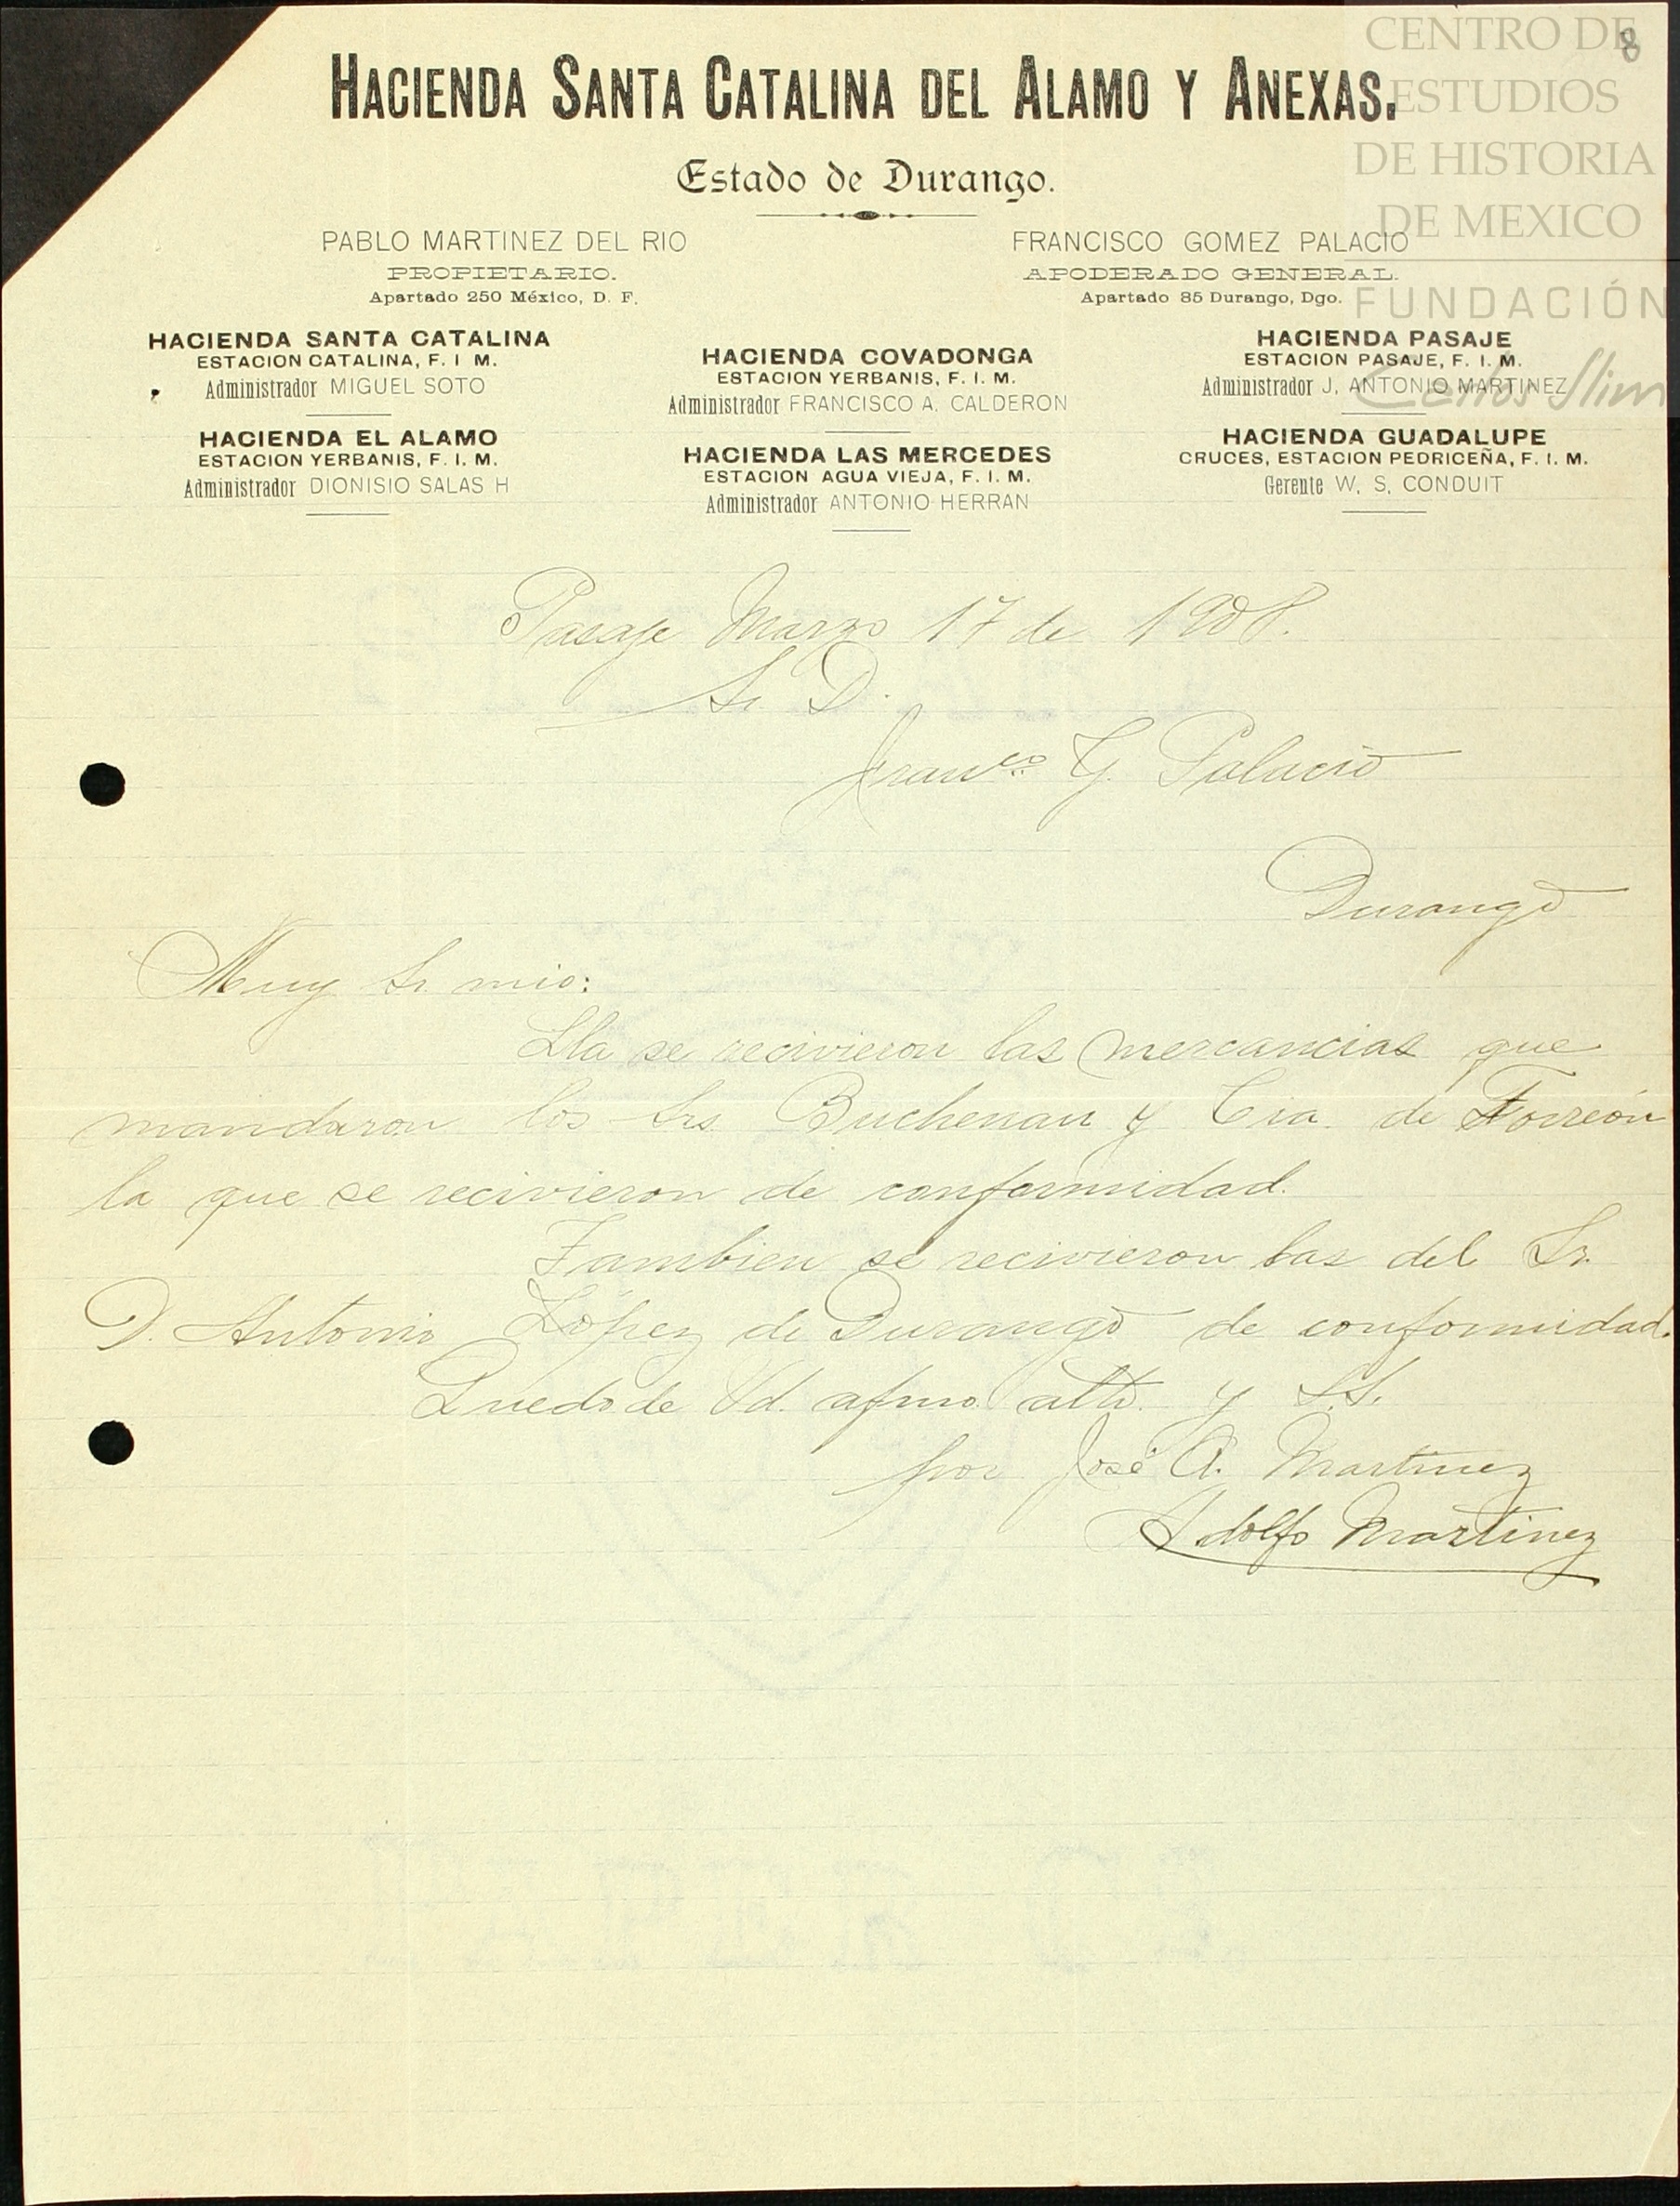 8
CENTRO DE
ESTUDIOS
DE HISTORIA
DE MEXICO
FUNDACIÓN
Carlos Slim
HACIENDA SANTA CATALINA DEL ALAMO Y ANEXAS.
Estado de Durango.
PABLO MARTINEZ DEL RIO
PROPIETARIO.
Apartado 250 México, D. F.
FRANCISCO GOMEZ PALACIO
APODERADO GENERAL.
Apartado 85 Durango, Dgo.
HACIENDA SANTA CATALINA
ESTACION CATALINA, F. I M.
Administrador MIGUEL SOTO
HACIENDA EL ALAMO
ESTACION YERBANIS, F. I. M.
Administrador DIONISIO SALAS H
HACIENDA COVADONGA
ESTACION YERBANIS, F. I. M.
Administrador FRANCISCO A. CALDERON
HACIENDA LAS MERCEDES
ESTACION AGUA VIEJA, F. I. M.
Administrador ANTONIO HERRAN
HACIENDA PASAJE
ESTACION PASAJE, F. I. M.
Administrador J. ANTONIO MARTINEZ
HACIENDA GUADALUPE
CRUCES, ESTACION PEDRICEÑA, F. I. M.
Gerente W. S. CONDUIT
Pasaje Marzo 17 de 1908.
Sr. D.
Franco. G. Palacio
Durango
Muy Sr. mio:
Lla se recivieron las mercancias que
mandaron los Srs. Buchenau y Cia. de Torreón
la que se recivieron de conformidad.
Tambien se recivieron las del Sr.
D. Antonio López de Durango de conformidad.
Quedo de Ud. afmo. atto. y S.S.
por José A. Martinez
Adolfo Martinez